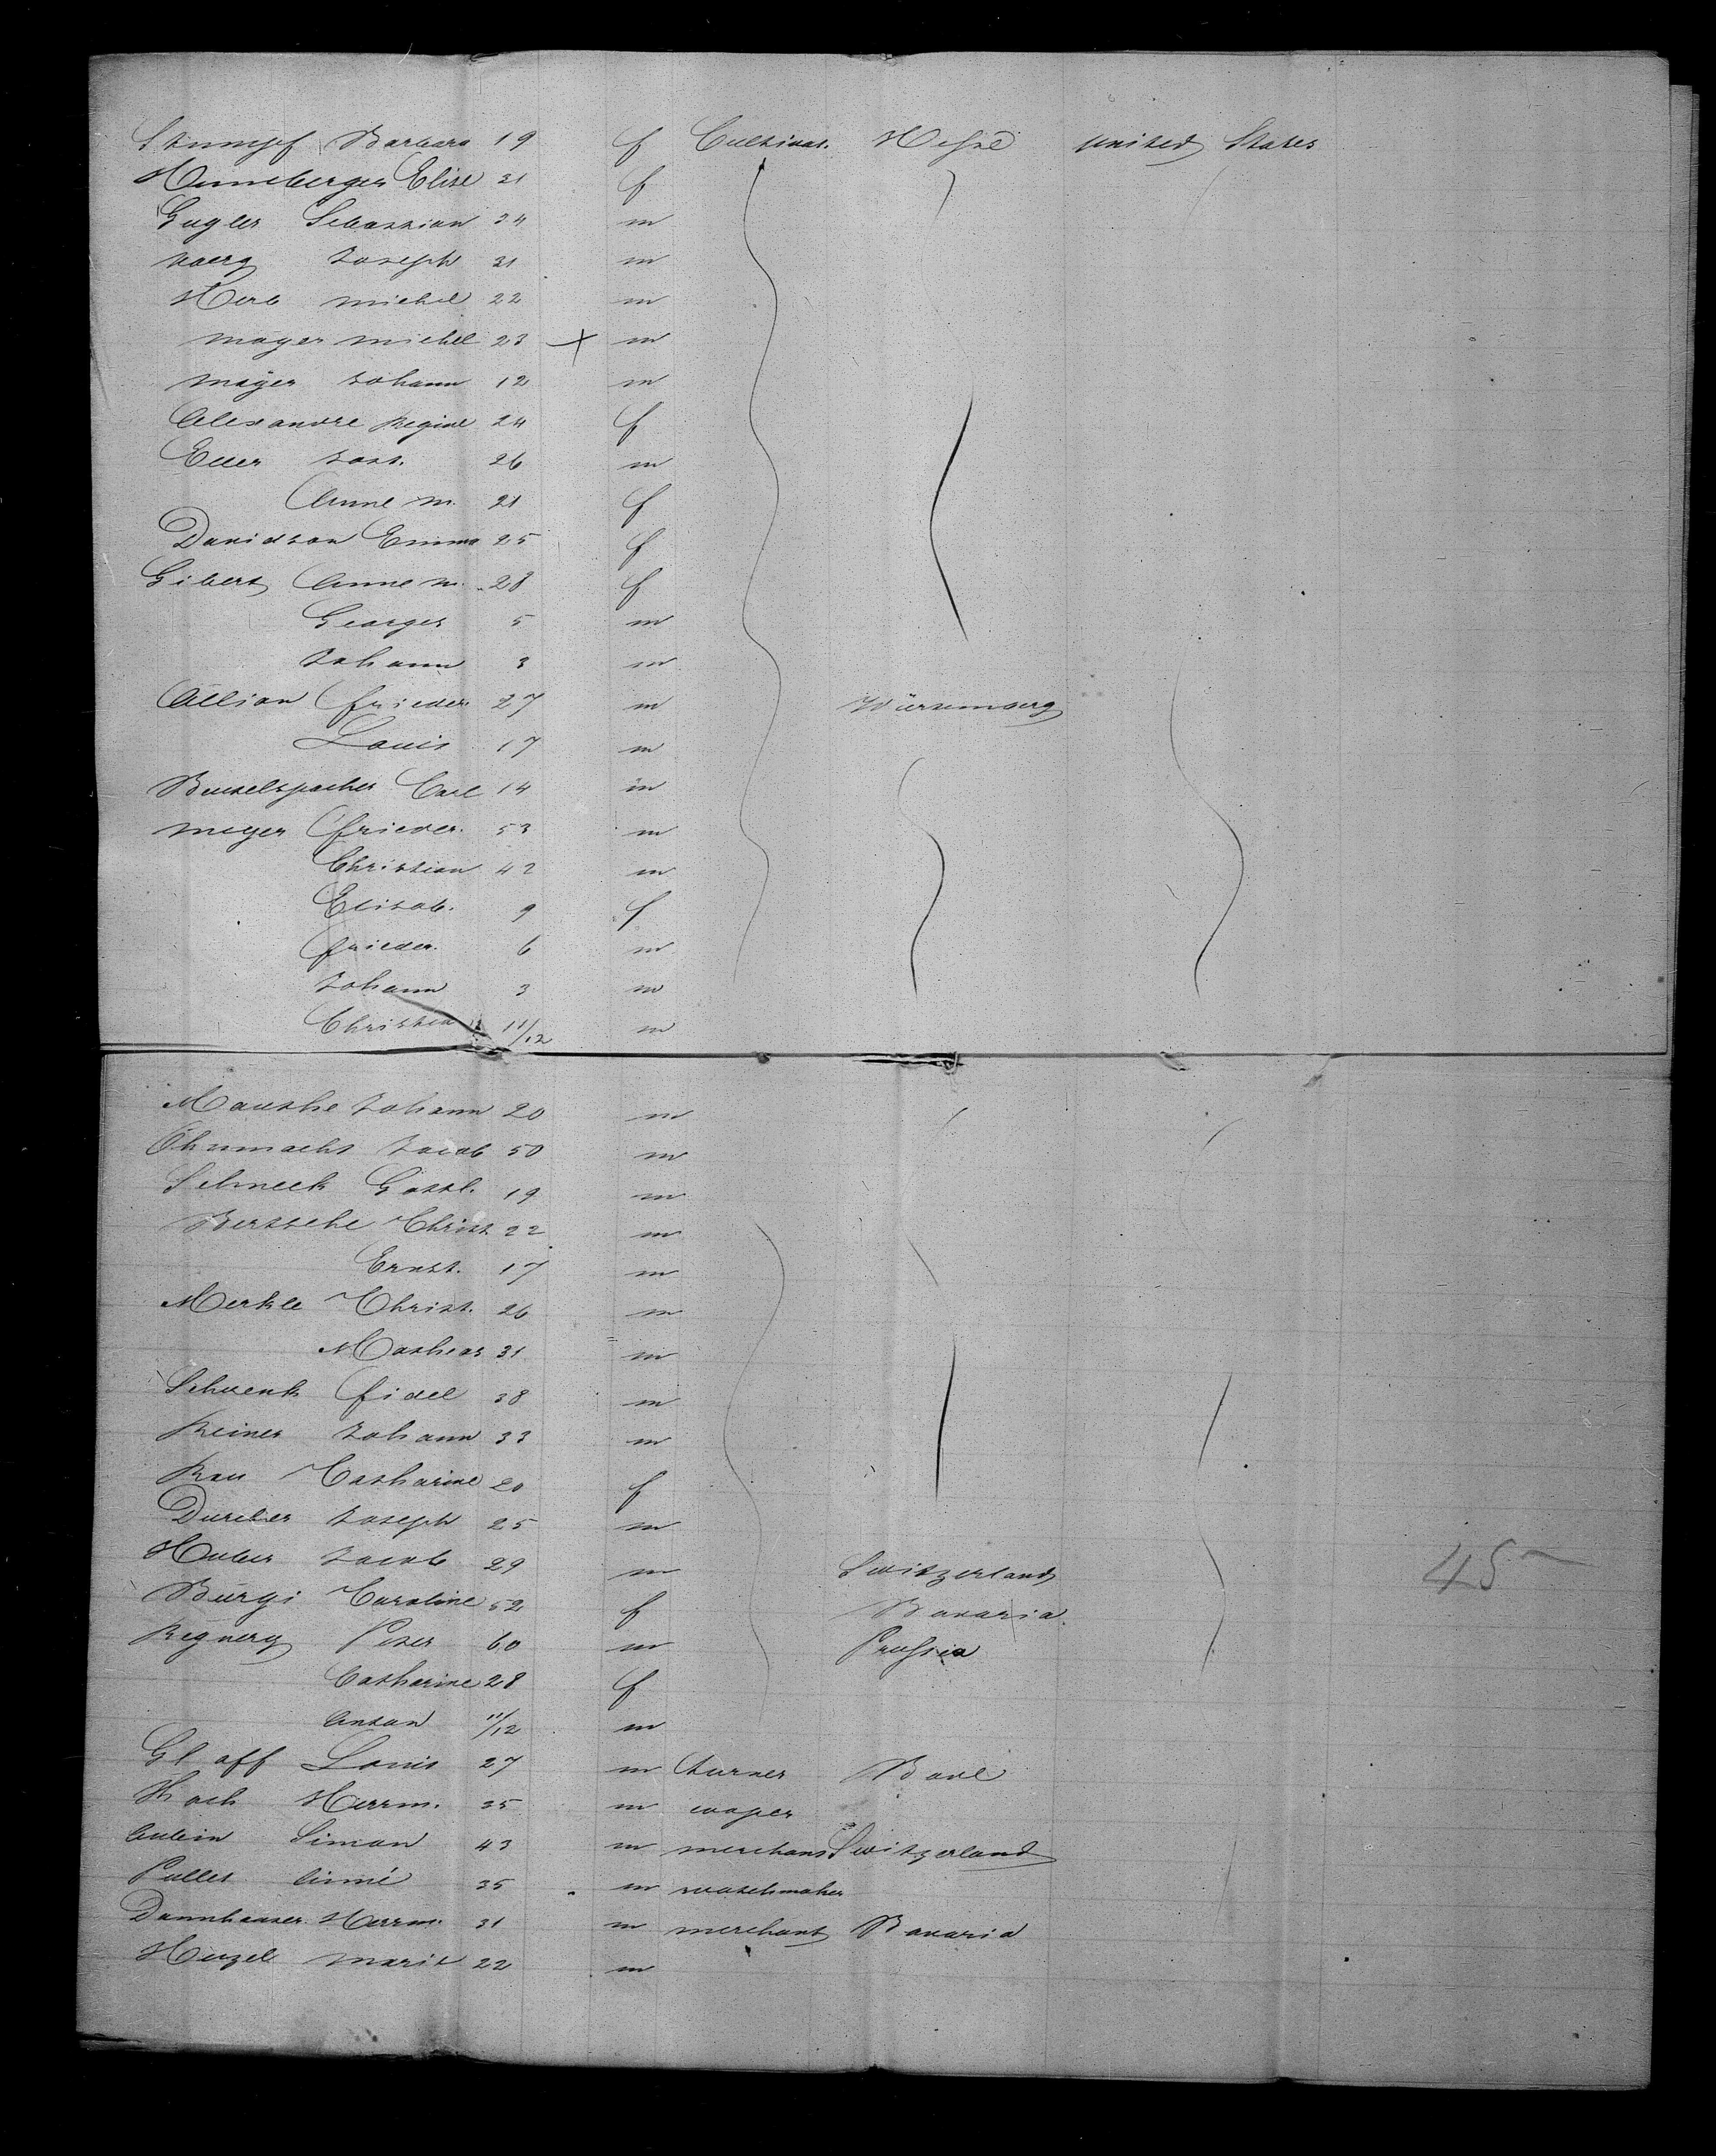 Stumpf Barbara 19 f Cultivat. Hesse united States
Henneberger Elise 31 f
Gugler Sebastian 24 m
Joseph 31 m
Herb michel 22 m
mayer michel 23 + m
mayer Johann 12 m
Alexandre Regine 24 f
Eller Jost. 26 m
Anne m. 21 f
Davidson Emma 25 f
Gibert Anne m. 28 f
Georges 5 m
Johann 3 m
Allion frieder. 27 m Würtemberg
Louis 17 m
Beutelspacher Carl 14 m
meyer frieder. 53 m
Christian 42 m
Elisab. 9 f
frieder. 6 m
Johann 3 m
Christian 11/12 m
Mauthe Johann 20 m
Ohnmacht Jacob 50 m
Schneck Gottl. 19 m
Bertsche Christ. 22 m
Ernst. 17 m
Merkle Christ. 26 m
Mathias 31 m
Schwenk fidel 38 m
Reiner Johann 33 m
Rau Catharine 20 f
Joseph 25 m
Huber Jacob 29 m Switzerland 45
Bürgi Caroline 52 f Bavaria
Regnery Peter 60 m Prussia
Catharine 28 f
Anton 11/12 m
Gloff Louis 27 m turner Bade
Koch Herrm. 35 m
Aubin Simon 43 m merchant Switzerland
Pullet Aimé 35 m watchmaker
Dannhauser Herrm. 31 m merchant Bavaria
22 m